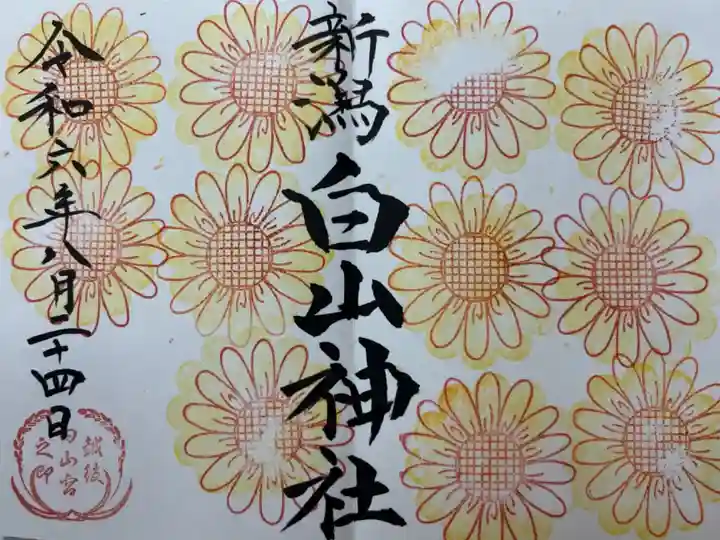 新潟白山神社
令和六年八月二十四日
越後
白山宮
之印